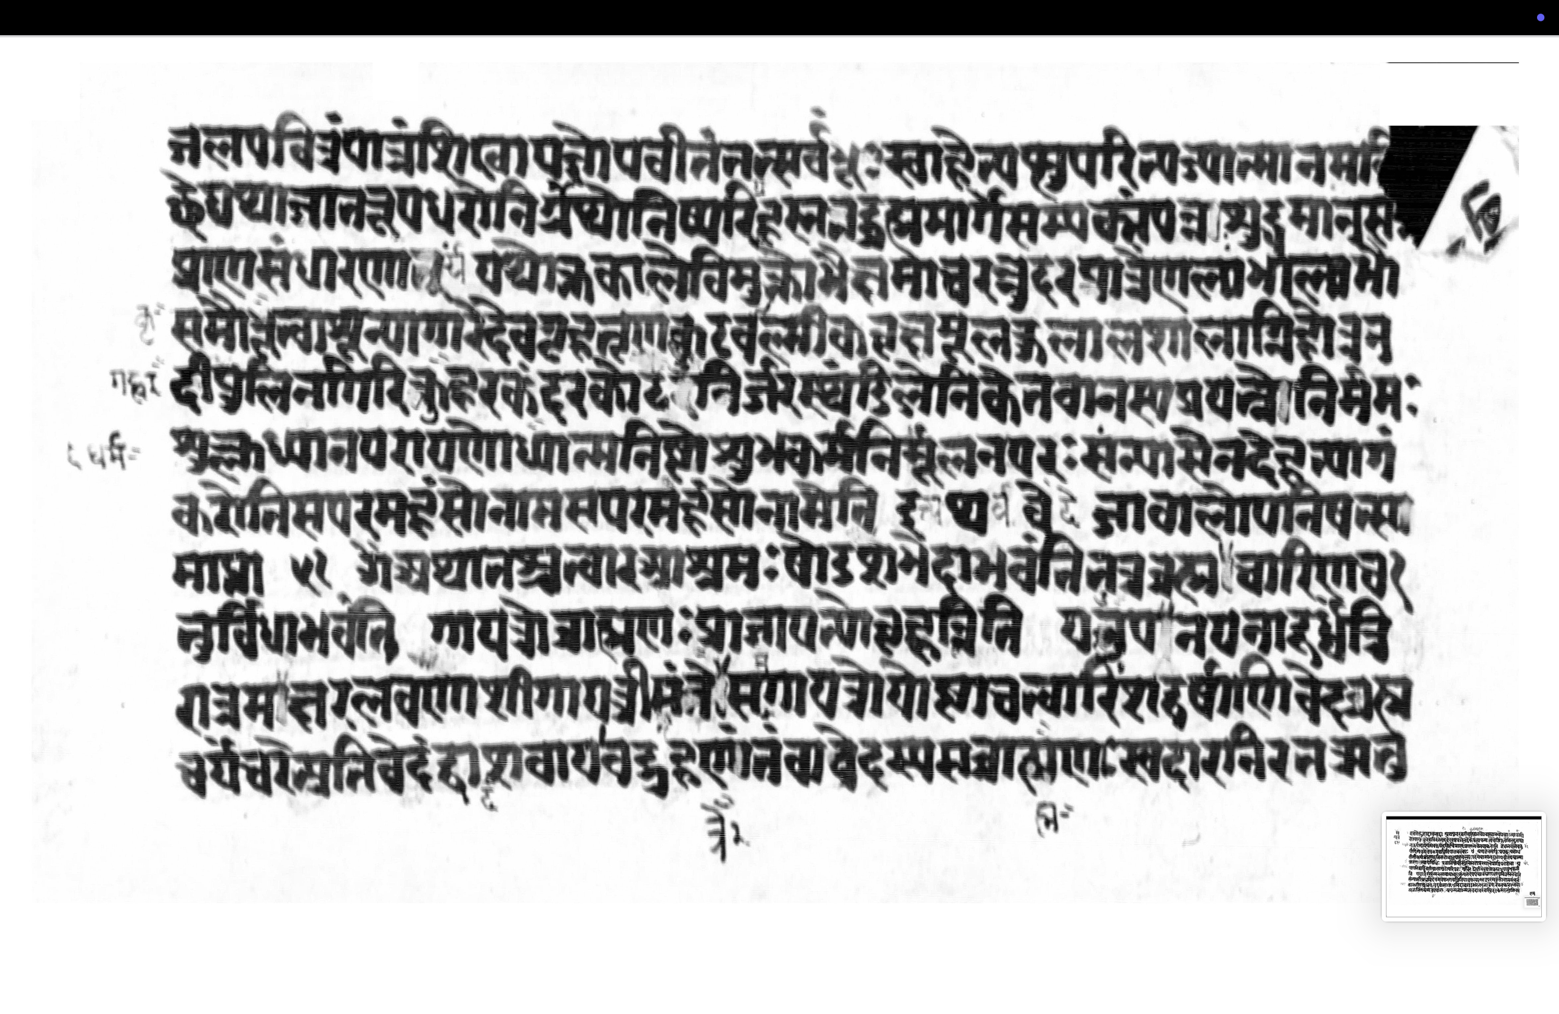 जलपवित्रंपात्रंशिखायज्ञोपवीतंतत्सर्वंभूःस्वाहेत्यप्सुपरित्यज्यात्मानमन्वि
छेद्यथाजातरूपधरोनिर्ग्रंथोनिष्परिग्रहस्तत्तद्ब्रह्ममार्गेसम्यक्संपन्नःशुद्धमानसः
प्राणसंधारणार्थं यथोक्तकालेविमुक्तोभैक्षमाचरन्नुदरपात्रेणलाभालाभौ
समौभूत्वाशून्यागारदेवगृहतृणकूटवल्मीकवृक्षमूलकुलालशालाग्निहोत्रन
दीपुलिनगिरिकुहरकंदरकोटरनिर्जरस्थंडिलेनिकेतवानस्यप्रयत्नोनिर्ममः
शुक्लध्यानपरायणोध्यात्मनिष्ठोशुभकर्मनिर्मूलनपरःसंन्यासेनदेहत्यागं
करोतिसपरमहंसोनामसपरमहंसोनामेति इत्यथर्ववेदे जावालोपनिषत्स
माप्ता ५१ अथातश्चत्वारआश्रमःषोडशभेदाभवंतितत्रब्रह्मचारिणश्च
तुर्विधाभवंति गायत्रोब्राह्मणःप्राजापत्योबृहन्निति यउपनयनादूर्ध्वंत्रि
रात्रमक्षारलवणाशीगायत्रीमंत्रेसगायत्रोयोष्टाचत्वारिंशद्वर्षाणिवेदब्रह्म
चर्यंचरेत्प्रतिवेदंद्वादशवायावद्ग्रहणांतंवावेदस्यसब्राह्मणःस्वदारनिरतऋतु